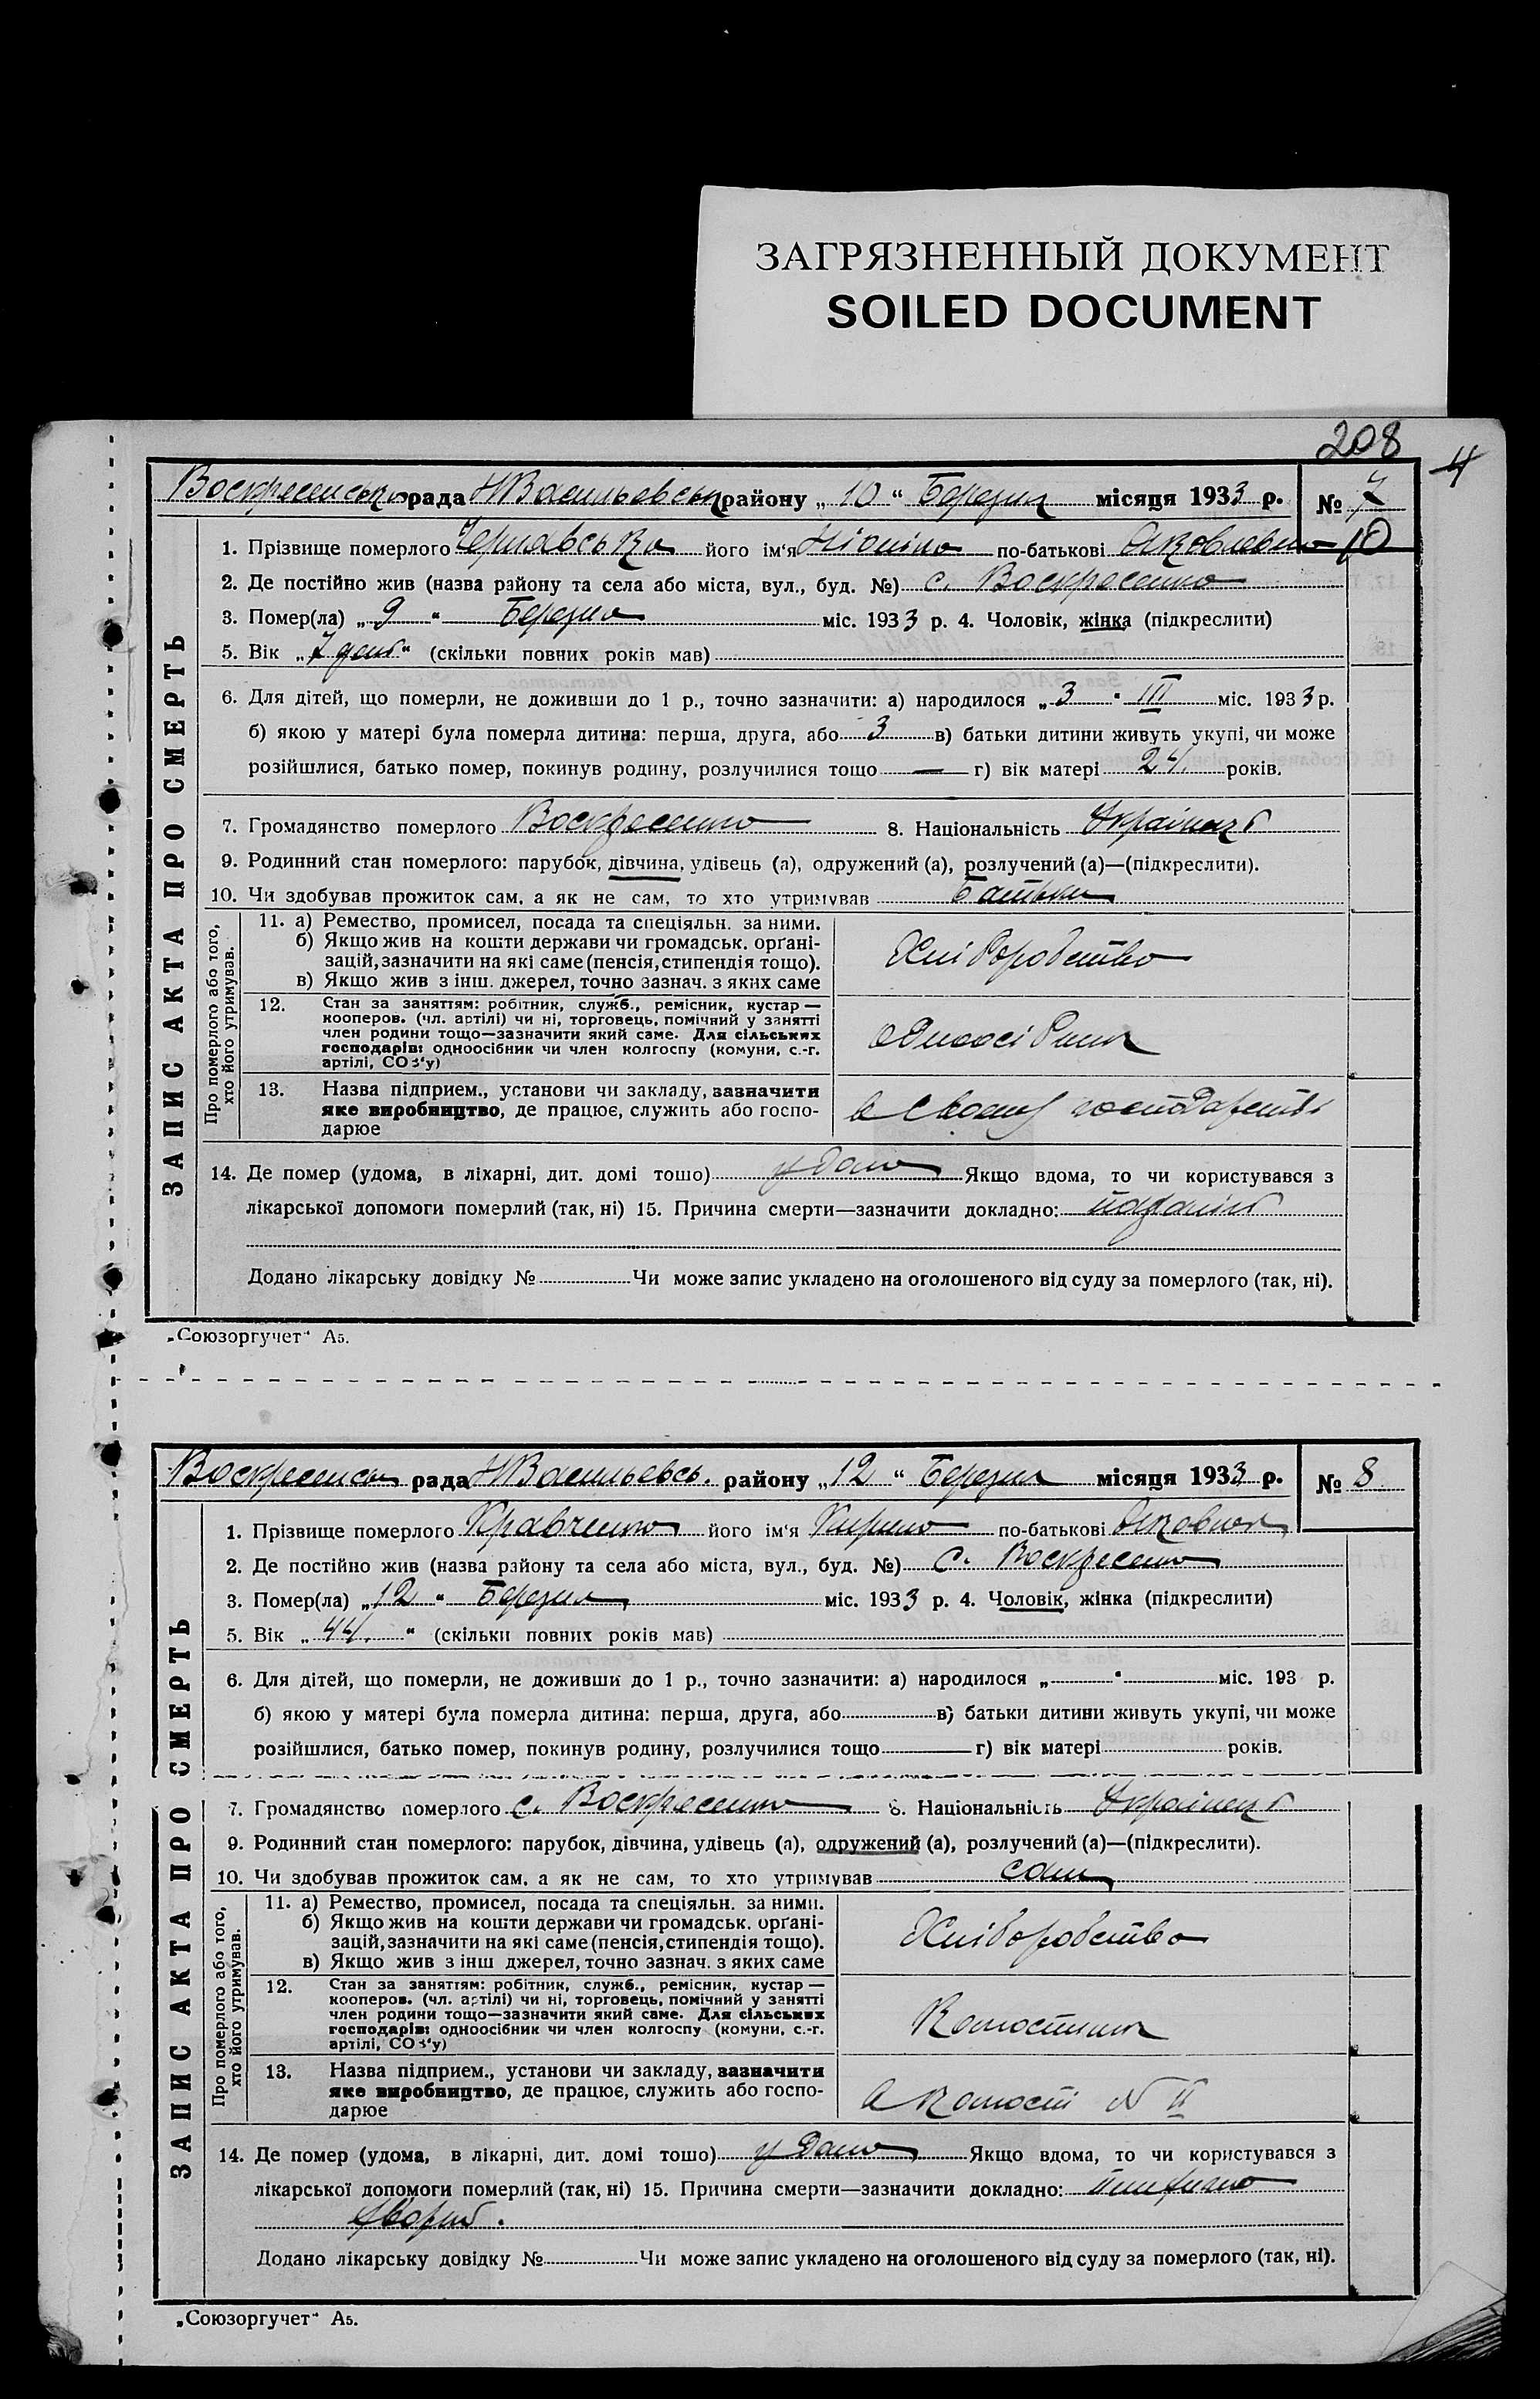 ЗАГРЯЗНЕННЫЙ ДОКУМЕНТ
SOILED DOCUMENT
208
4
Воскресенська рада НВасильевськ району „10“ Березня місяця 1933 р. № 7
10
1. Прізвище померлого Чернавська його ім'я по-батькові Яковлевна
2. Де постійно жив (назва району та села або міста, вул., буд. №) с. Воскресенка
3. Помер(ла) „9“ Березня міс. 1933 р. 4. Чоловік, жінка (підкреслити)
5. Вік „7 день“ (скільки повних років мав)
6. Для дітей, що померли, не доживши до 1 р., точно зазначити: а) народилося „3“ III міс. 1933 р.
б) якою у матері була померла дитина: перша, друга, або 3 в) батьки дитини живуть укупі, чи може
розійшлися, батько помер, покинув родину, розлучилися тощо — г) вік матері 24. років.
7. Громадянство померлого Воскресенка 8. Національність Українец
9. Родинний стан померлого: парубок, дівчина, удівець (а), одружений (а), розлучений (а)—(підкреслити).
10. Чи здобував прожиток сам, а як не сам, то хто утримував Батьки
ЗАПИС АКТА ПРО СМЕРТЬ
Про померлого або того, хто його утримував.
11. а) Ремество, промисел, посада та спеціяльн. за ними.
б) Якщо жив на кошти держави чи громадськ. орґані-
зацій, зазначити на які саме (пенсія, стипендія тощо).
в) Якщо жив з інш. джерел, точно зазнач. з яких саме
Хліборобство
12. Стан за заняттям: робітник, служб., ремісник, кустар—
кооперов. (чл. артілі) чи ні, торговець, помічний у занятті
член родини тощо—зазначити який саме. Для сільських
господарів: одноосібник чи член колгоспу (комуни, с.-г.
артілі, СОЗ'у)
одноосібник
13. Назва підприєм., установи чи закладу, зазначити
яке виробництво, де працює, служить або госпо-
дарює
в своєму господарстві
14. Де помер (удома, в ліхарні, дит. домі тошо) у дома Якщо вдома, то чи користувався з
лікарської допомоги померлий (так, ні) 15. Причина смерти—зазначити докладно:
Додано лікарську довідку № Чи може запис укладено на оголошеного від суду за померлого (так, ні).
„Союзоргучет“ А5.
Воскресенськ рада НВасильевсь. району „12“ Березня місяця 1933 р. № 8
1. Прізвище померлого Кравченко його ім'я Кирило по-батькові Яковлов
2. Де постійно жив (назва району та села або міста, вул., буд. №) с. Воскресенка
3. Помер(ла) „12“ Березня міс. 1933 р. 4. Чоловік, жінка (підкреслити)
5. Вік „44.“ (скільки повних років мав)
6. Для дітей, що померли, не доживши до 1 р., точно зазначити: а) народилося „ “ міс. 193 р.
б) якою у матері була померла дитина: перша, друга, або в) батьки дитини живуть укупі, чи може
розійшлися, батько помер, покинув родину, розлучилися тощо г) вік матері років.
7. Громадянство померлого с. Воскресенка 8. Національність Українец
9. Родинний стан померлого: парубок, дівчина, удівець (а), одружений (а), розлучений (а)—(підкреслити).
10. Чи здобував прожиток сам, а як не сам, то хто утримував сам
ЗАПИС АКТА ПРО СМЕРТЬ
Про померлого або того, хто його утримував.
11. а) Ремество, промисел, посада та спеціяльн. за ними.
б) Якщо жив на кошти держави чи громадськ. орґані-
зацій, зазначити на які саме (пенсія, стипендія тощо).
в) Якщо жив з інш джерел, точно зазнач. з яких саме
Хліборобство
12. Стан за заняттям: робітник, служб., ремісник, кустар—
кооперов. (чл. артілі) чи ні, торговець, помічний у занятті
член родини тощо—зазначити який саме. Для сільських
господарів: одноосібник чи член колгоспу (комуни, с.-г.
артілі, СОЗ'у)
13. Назва підприєм., установи чи закладу, зазначити
яке виробництво, де працює, служить або госпо-
дарює
в № II
14. Де помер (удома, в лікарні, дит. домі тошо) у дома Якщо вдома, то чи користувався з
лікарської допомоги померлий (так, ні) 15. Причина смерти—зазначити докладно:
Додано лікарську довідку № Чи може запис укладено на оголошеного від суду за померлого (так, ні).
„Союзоргучет“ А5.